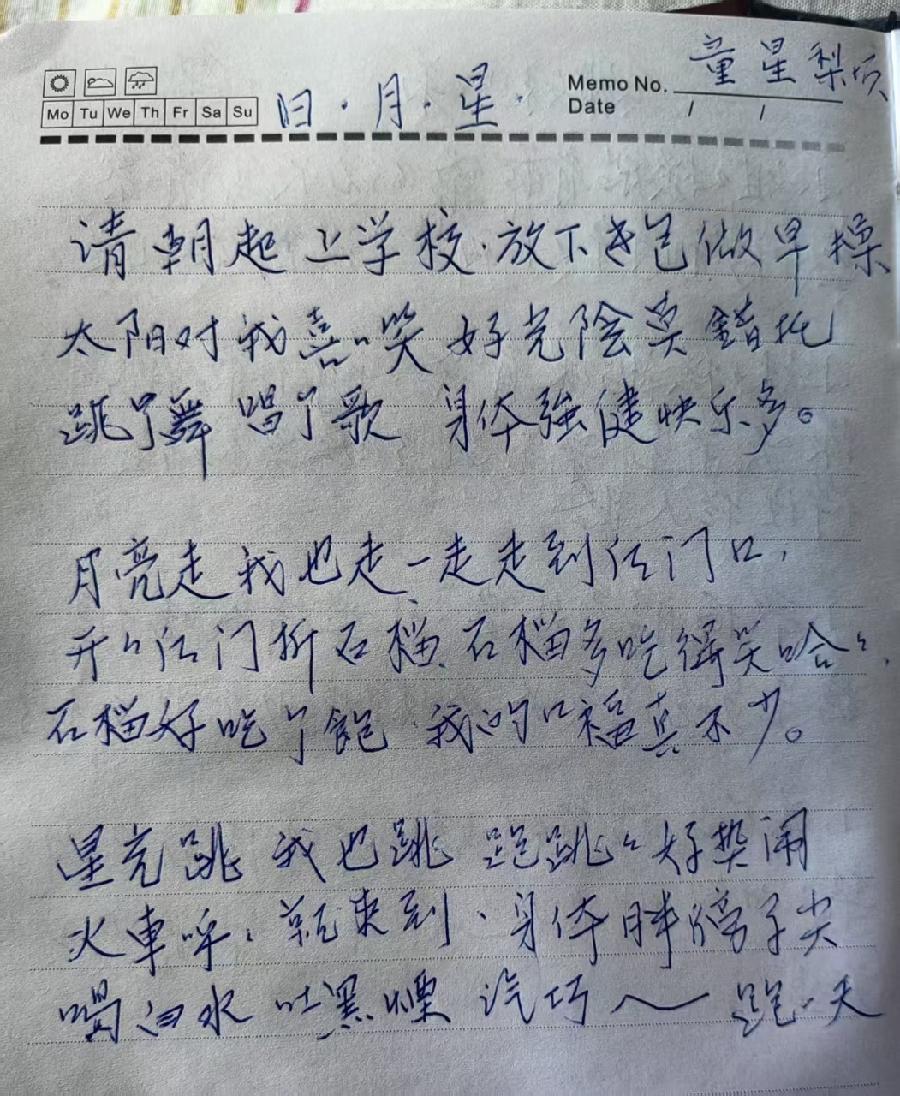 Mo Tu We Th Fr Sa Su
日·月·星·
Memo No. 童星梨园
Date / /
请朝起上学校·放下书包做早操
太阳对我喜笑 好光陰莫錯托
跳了舞 唱了歌 身体強健快乐多。
月亮走我也走一走走到江门口,
开々江门折石榴、石榴多吃得笑哈々,
石榴好吃了飽·我的口福真不少。
星亮跳 我也跳 跑跳々好热闹
火車呼·就来到·身体胖 子尖
喝白水 吐黑煙 汽巧〜 跑 天